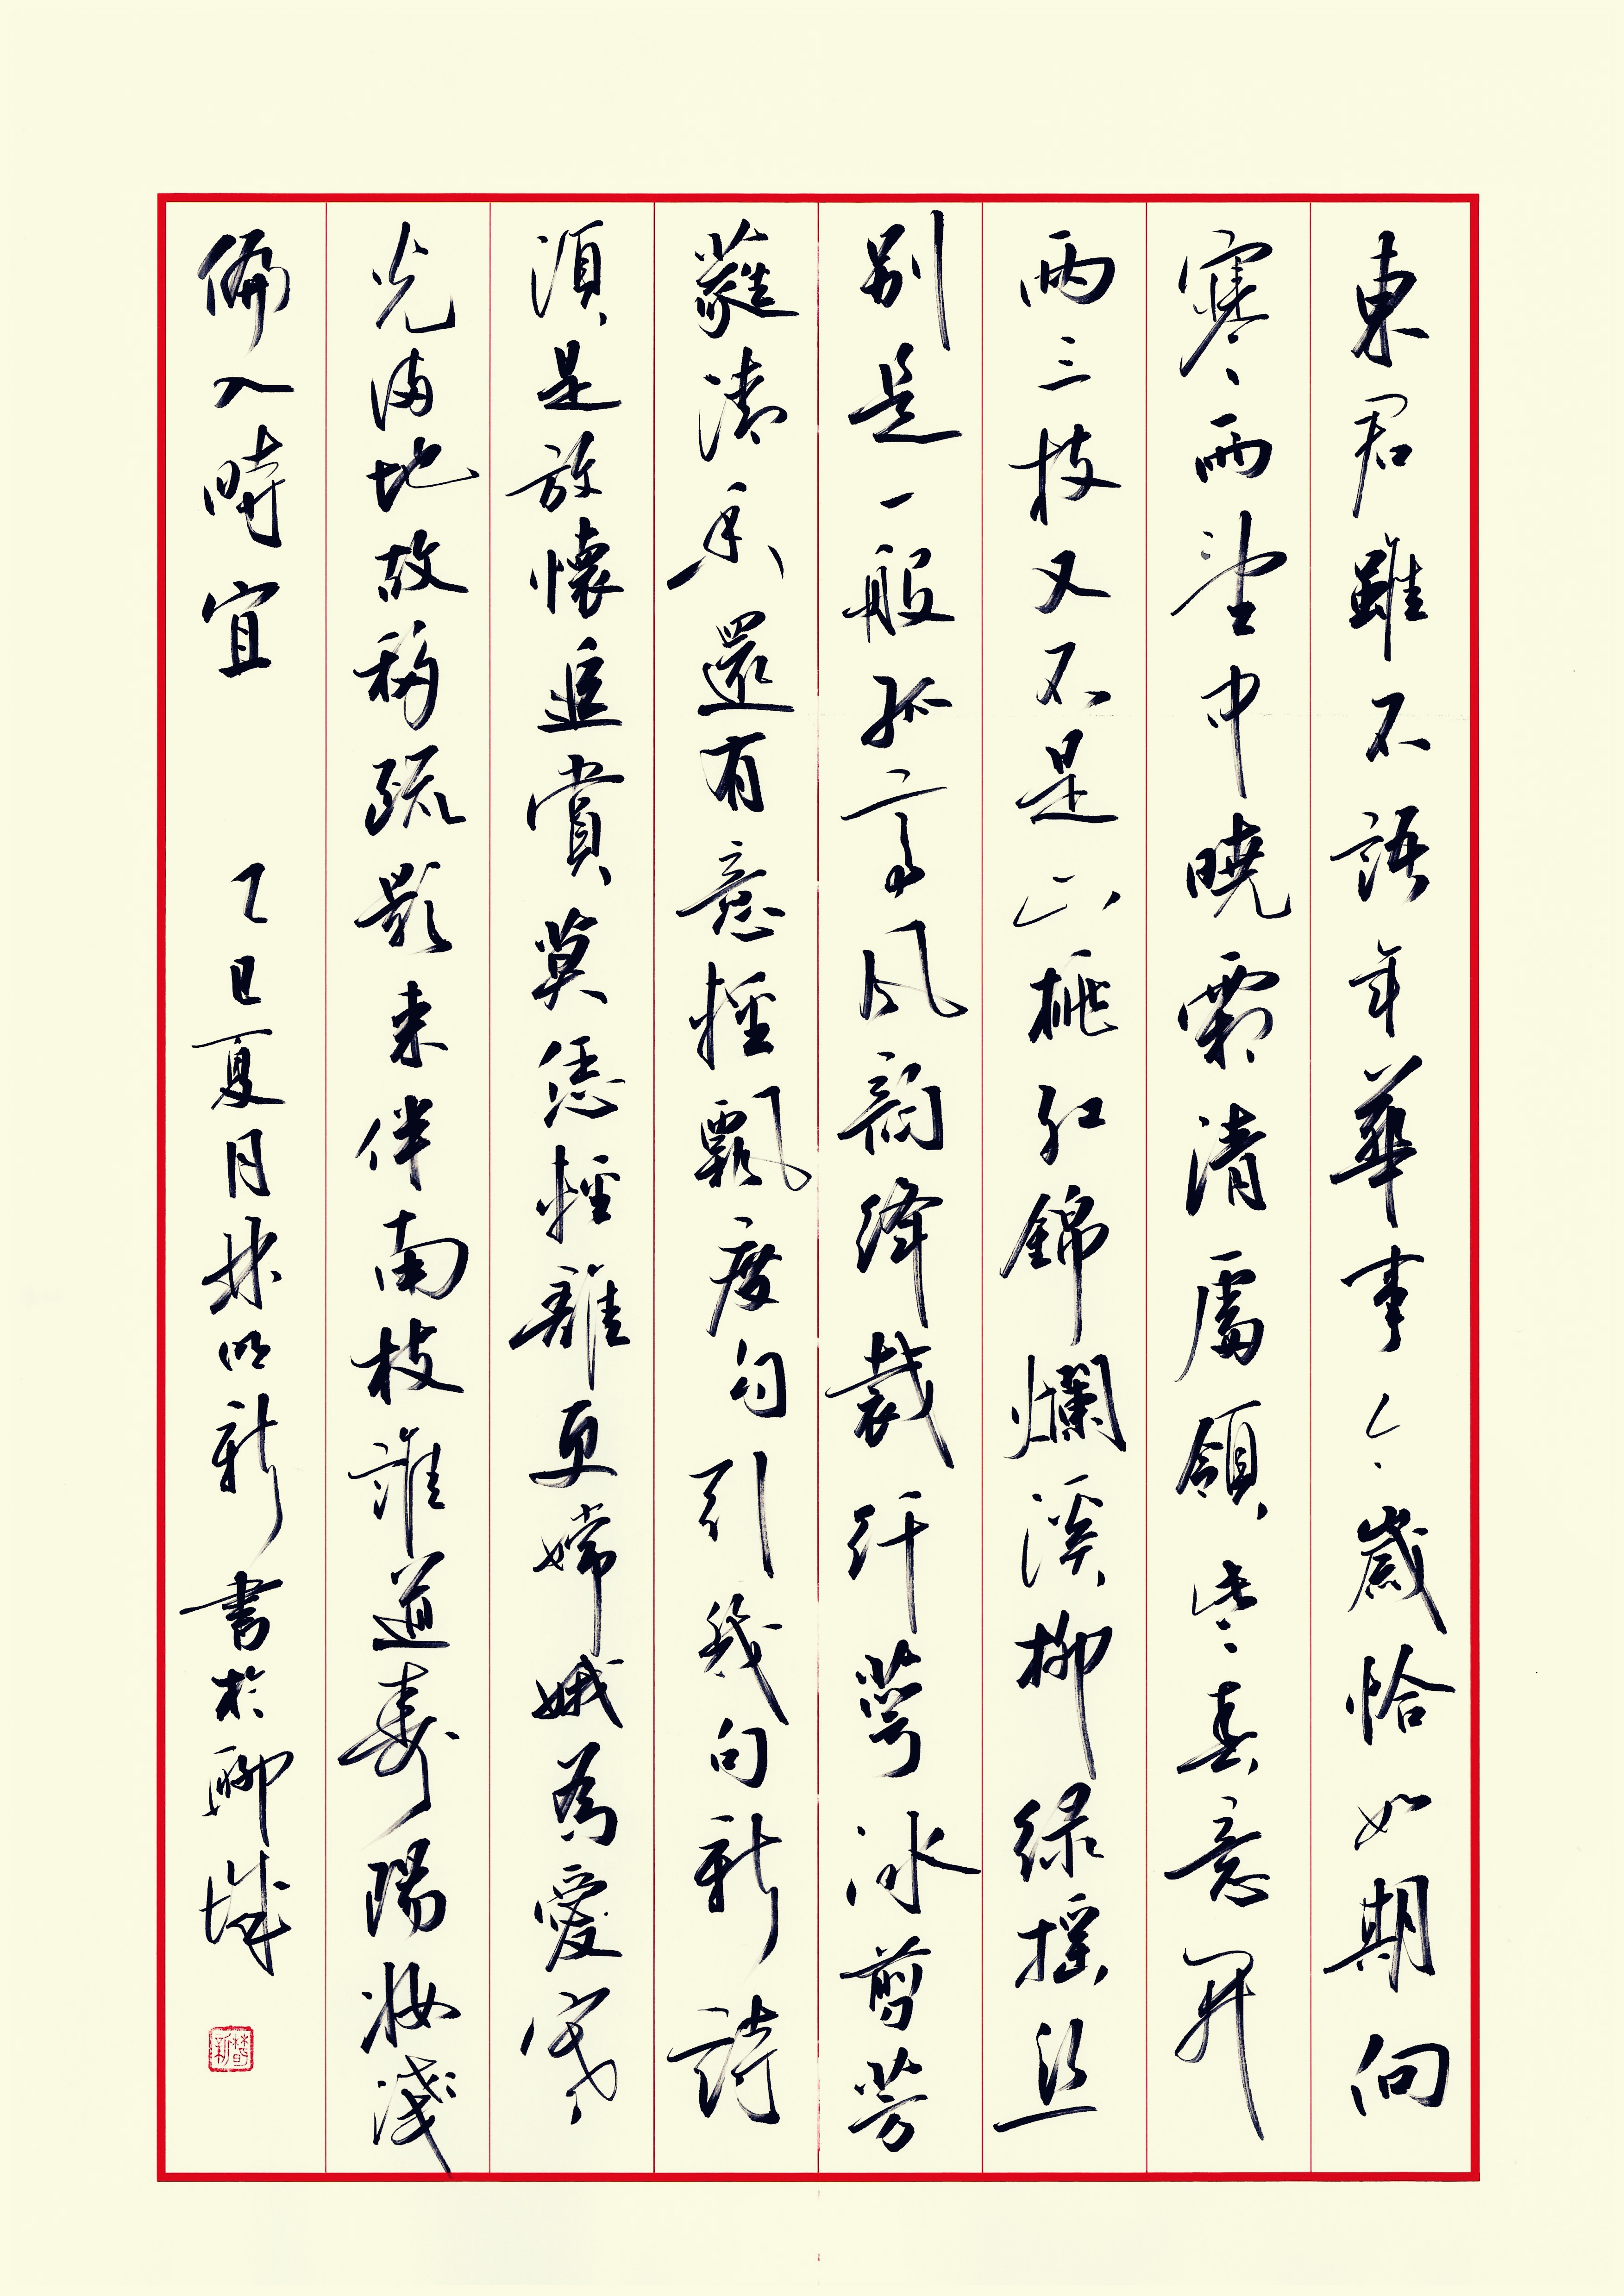 東君雖不語年華事今歲恰如期向
寒雨望中曉霜清處領些春意開
兩三枝又不是山桃紅錦爛溪柳綠搖絲
別是一般孤高風韻絳裁纤萼冰剪芳
蕤清香還有意輕飄度勾引幾句新詩
須是放懷追賞莫恁輕離更嫦娥為愛寒
光滿地故移疏影來伴南枝誰道壽陽妝淺
偏入時宜 乙巳夏月林明新書於聊城